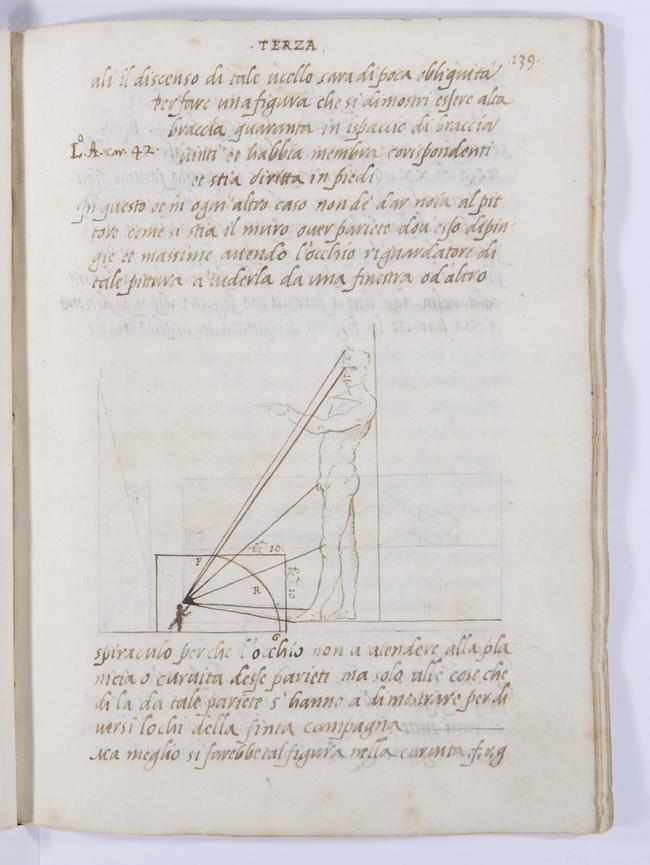 · TERZA .
139.
ali il discenso di tale ucello sara di poca obliquità
Per fare una figura che si dimostri essere alta
braccia quaranta in ispaccio di braccia
L.° A. car. 42.
uinti et habbia membra corispondenti
et stia diritta in piedi
In questo et in ogni altro caso non de dar noia al pit
tore come si stia il muro ouer pariete dou esso dipin-
gie et massime auendo l'occhio riguardatore di
tale pittura a uederla da una finestra od altro
F
br.ª 10.
br.ª 10
R
G
spiraculo perche l'occhio non a atendere alla pla
nicia o curuita desse parieti ma solo alle cose che
di la da tale pariete s'hanno a dimostrare per di
uersi lochi della finta campagna
Ma meglio si farebbe tal figura nella curuita .f,r,g